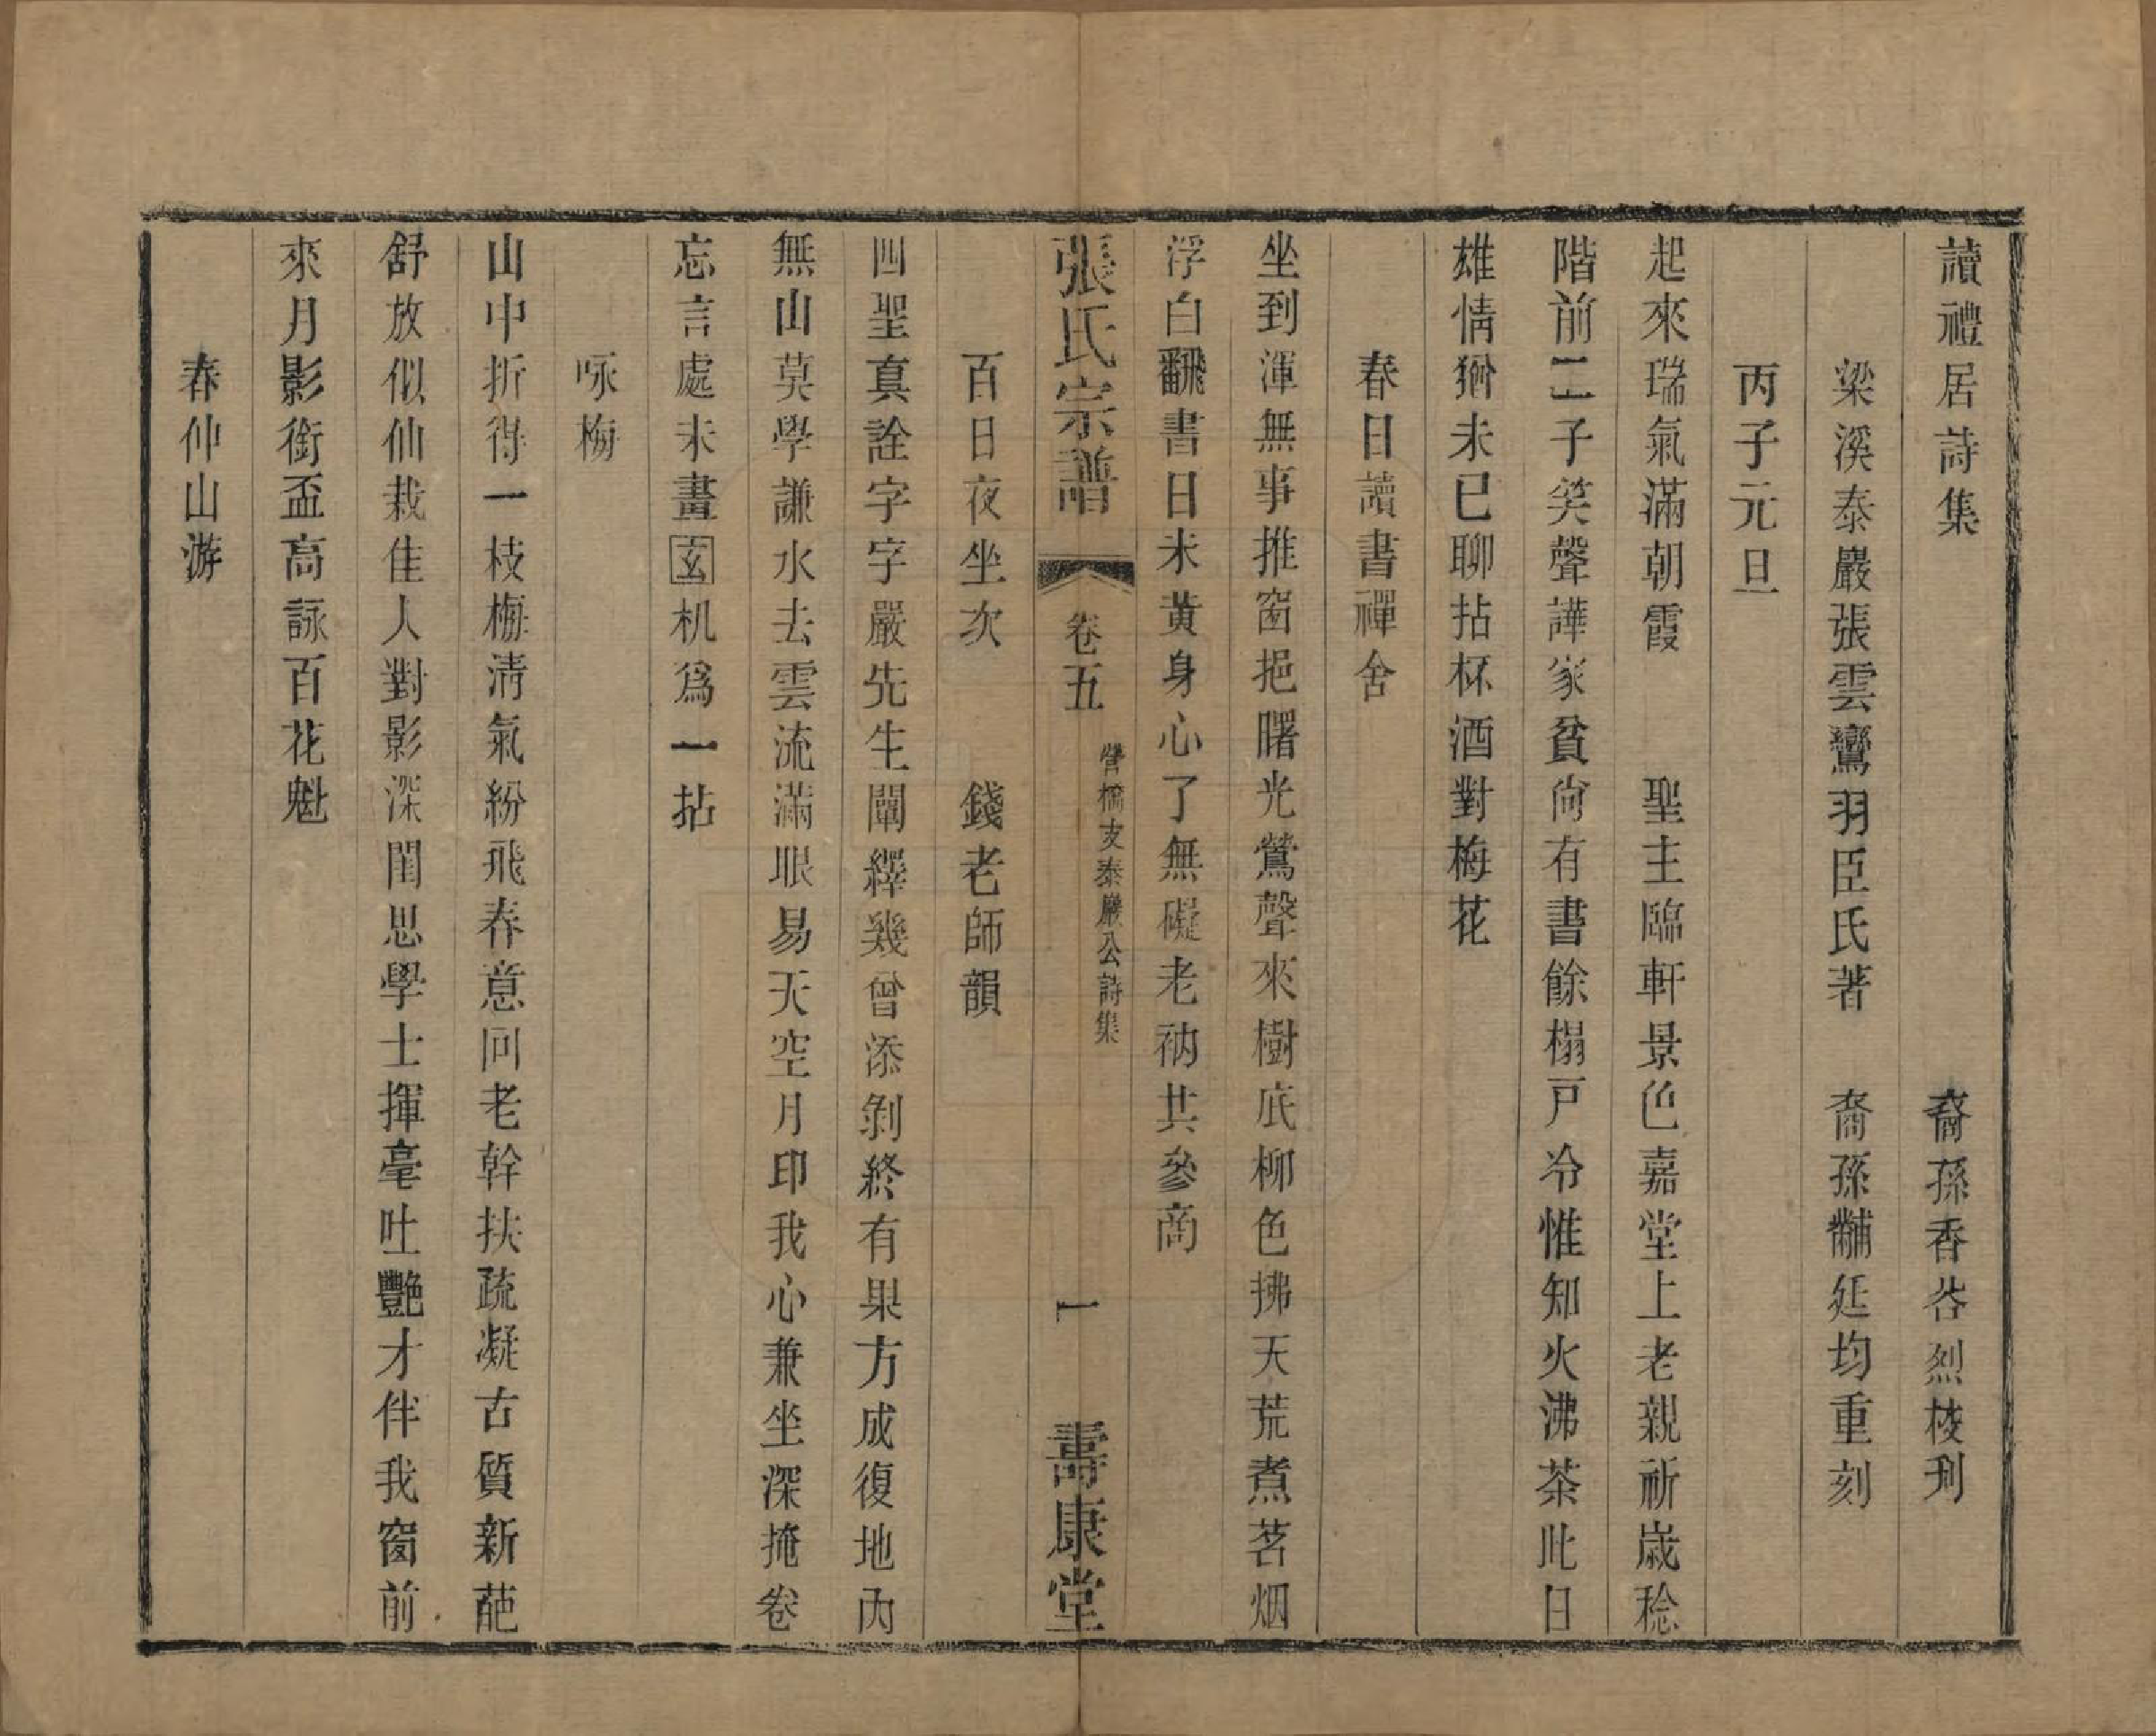 讀禮居詩集　裔孫香谷烈梭刋
梁溪泰巖張雲鸞羽臣氏著　裔孫黼延均重刻
丙子元旦
起來瑞氣滿朝霞　聖主臨軒景色嘉堂上老親祈歲稔
階前二子笑聲譁家貧尙有書餘榻戸冷惟知火沸茶此日
雄情猶未已聊拈杯酒對梅花
春日讀書禪舍
坐到渾無事推窗挹曙光鶯聲來樹底柳色拂天荒煮茗烟
浮白飜書日未黃身心了無礙老衲共參啇
張氏宗譜　卷五　營橋支泰巖公詩集　一　壽康堂
百日夜坐次　錢老師韻
四聖真詮字字嚴先生闡繹幾曾添剝終有果方成復地內
無山莫學謙水去雲流滿眼易天空月印我心兼坐深掩卷
忘言處未畫玄机爲一拈
咏梅
山中折得一枝梅淸氣紛飛春意回老幹扶疏凝古質新葩
舒放似仙栽佳人對影深閨思學士揮毫吐艷才伴我窗前
來月影銜盃高詠百花魁
春仲山游